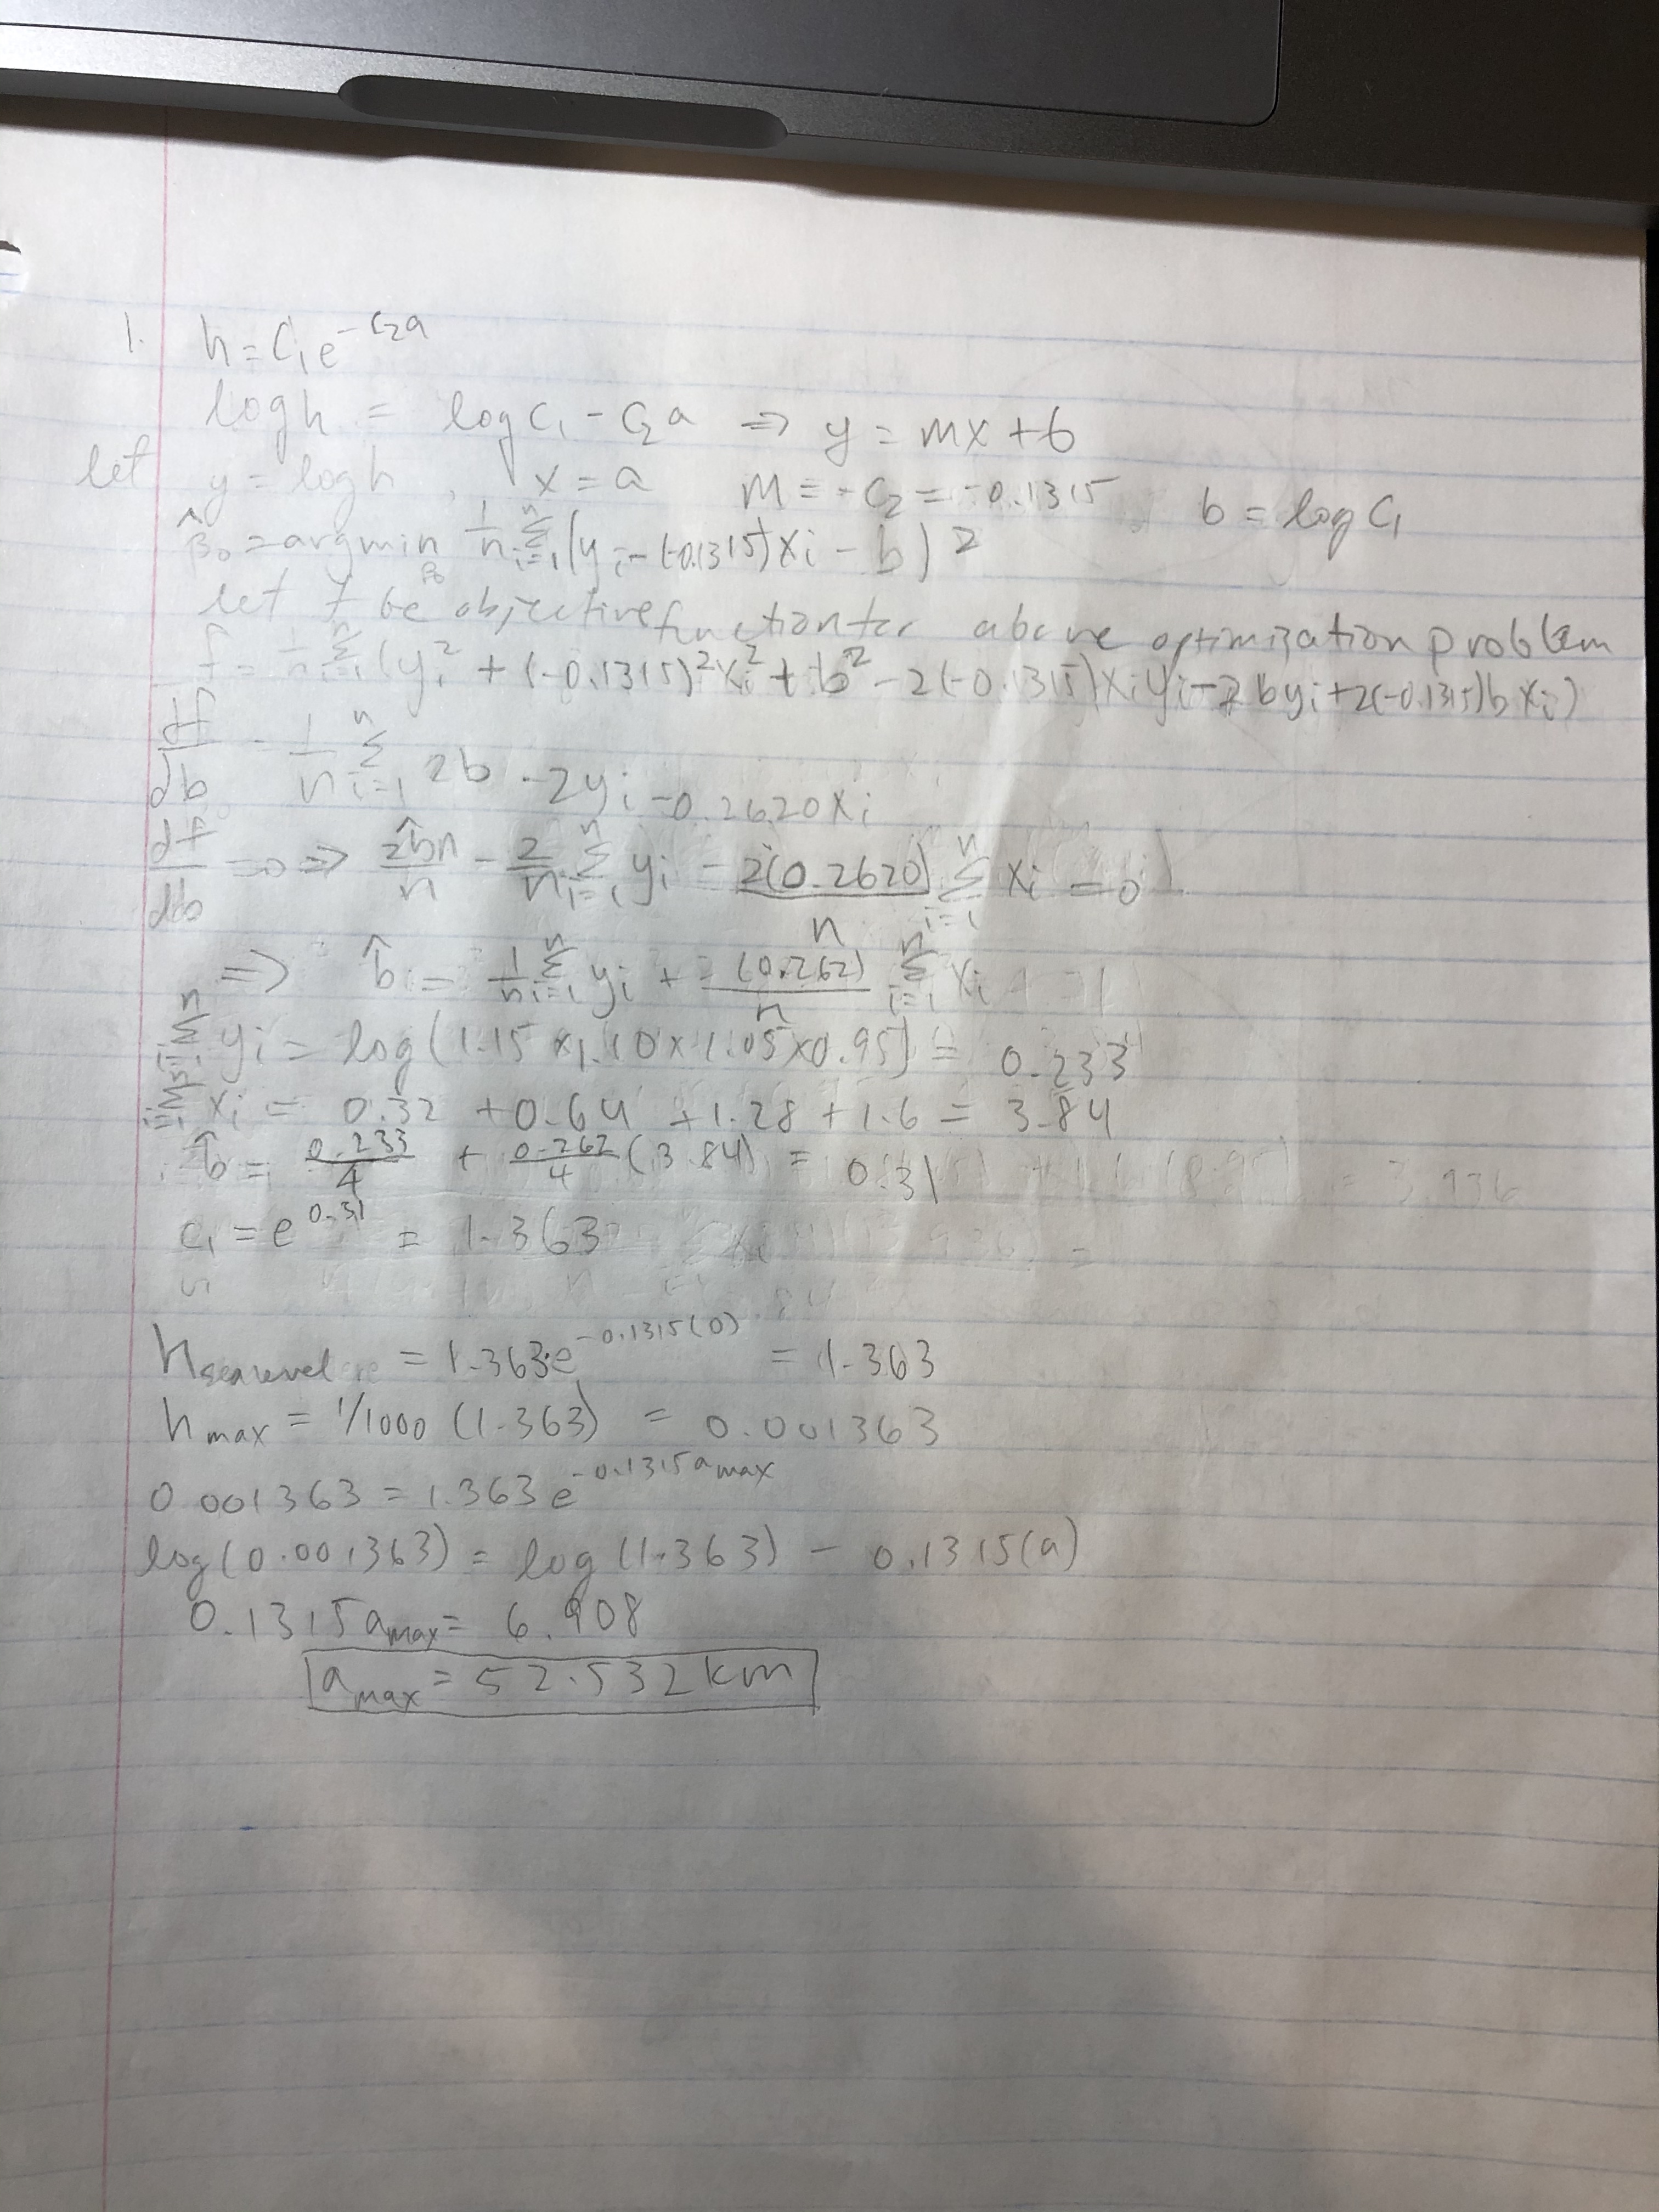 1. h = C₁e^(-C₂a)
log h = log C₁ - C₂a ⇒ y = mx + b
let y = log h, x = a m = -C₂ = -0.1315 b = log C₁
β̂₀ = argmin_β₀ 1/n Σ_{i=1}^n (y_i - (-0.1315)x_i - b)²
let f be objective function for above optimization problem
f = 1/n Σ_{i=1}^n (y_i² + (-0.1315)²x_i² + b² - 2(-0.1315)x_i y_i - 2by_i + 2(-0.1315)b x_i)
df/db = 1/n Σ_{i=1}^n 2b - 2y_i - 0.2620x_i
df/db = 0 ⇒ 2b̂n/n - 2/n Σ_{i=1}^n y_i - 2(0.2620)/n Σ_{i=1}^n x_i = 0
⇒ b̂ = 1/n Σ_{i=1}^n y_i + (0.262)/n Σ_{i=1}^n x_i
Σ_{i=1}^n y_i = log(1.15 × 1.10 × 1.05 × 0.95) = 0.233
Σ_{i=1}^n x_i = 0.32 + 0.64 + 1.28 + 1.6 = 3.84
b̂ = 0.233/4 + 0.262/4 (3.84) = 0.31
C₁ = e^0.31 = 1.363
h_sea level = 1.363e^(-0.1315(0)) = 1.363
h_max = 1/1000 (1.363) = 0.001363
0.001363 = 1.363e^(-0.1315a_max)
log(0.001363) = log(1.363) - 0.1315(a)
0.1315a_max = 6.908
a_max = 52.532 km